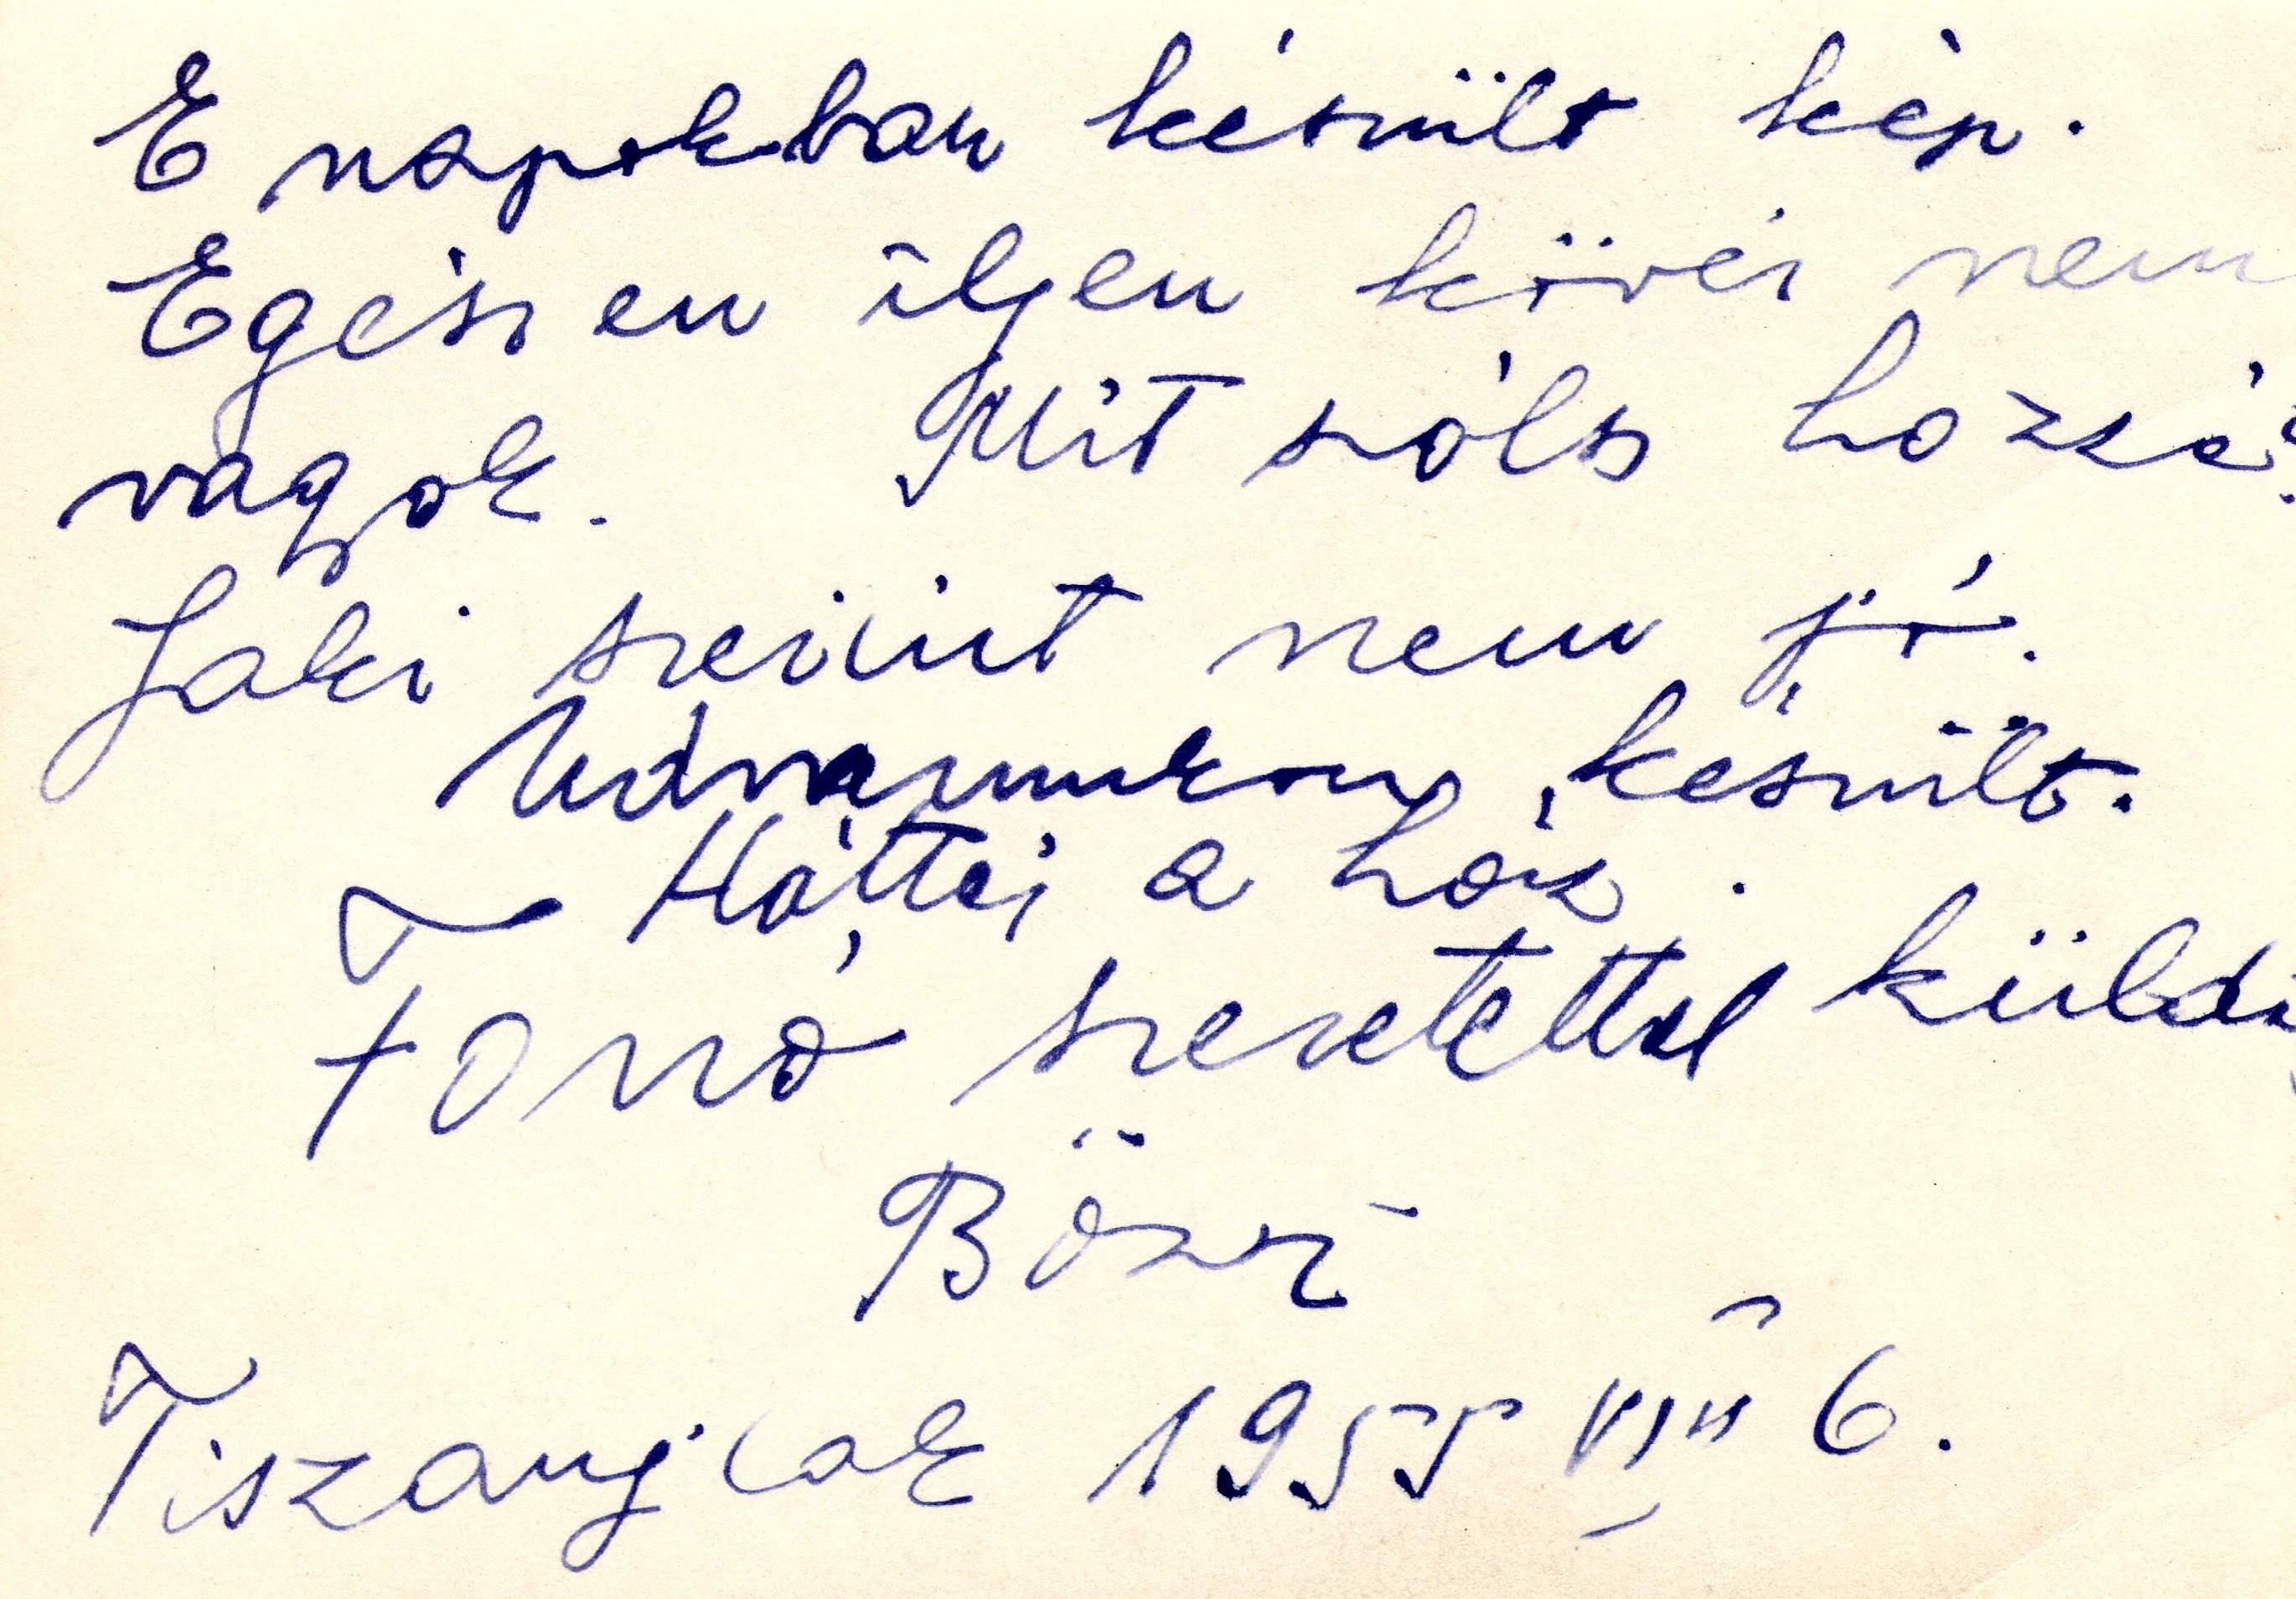 E napokban készült kép.
Egészen ilyen kövér nem
vagyok. Mit szólsz hozzá?
Jaki szerint nem jó.
Udvarunkon készült.
Háttér a ház.
Forró szeretettel küldi
Bözsi
Tiszaújlak 1955 VIII 6.